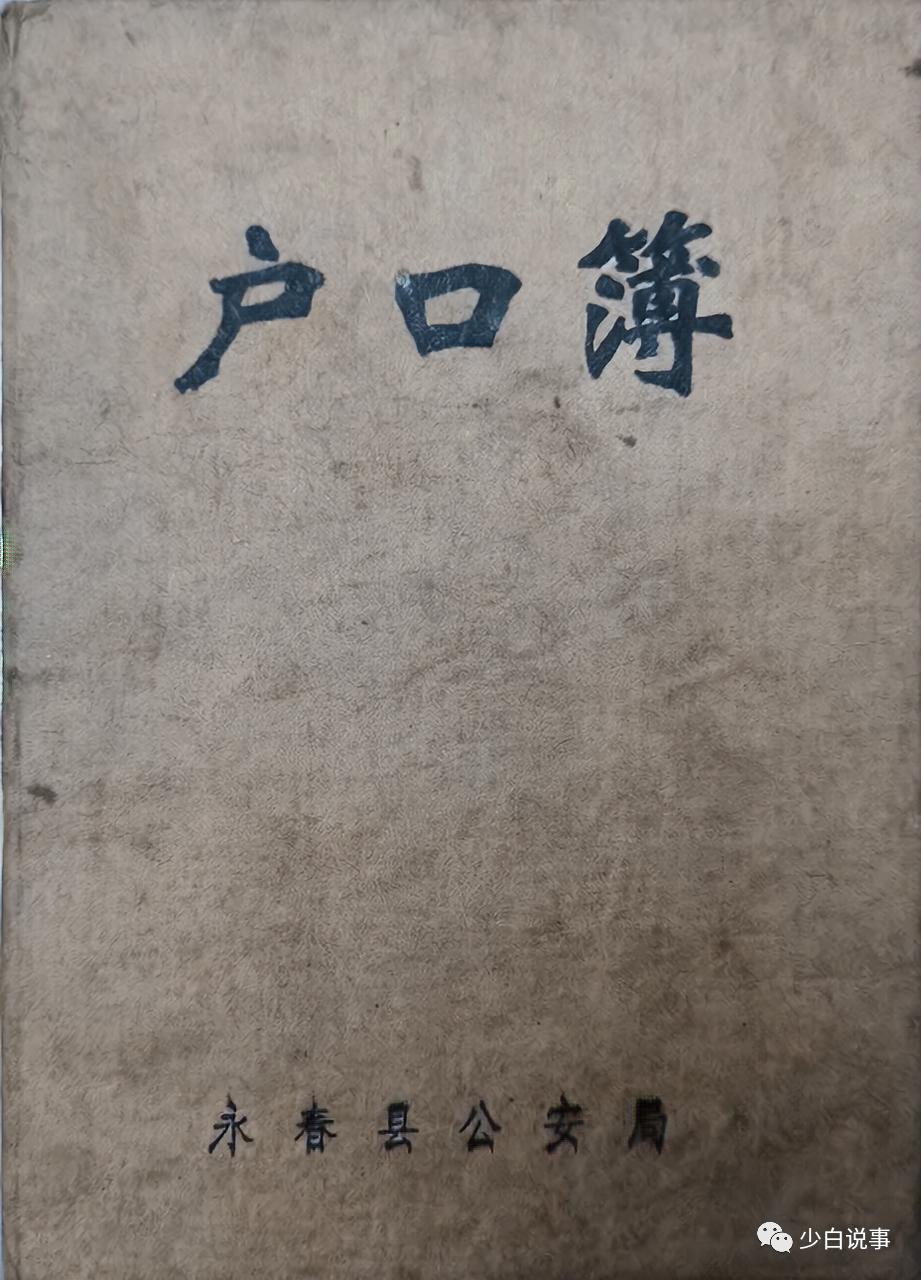 户口簿
永春县公安局
少白说事